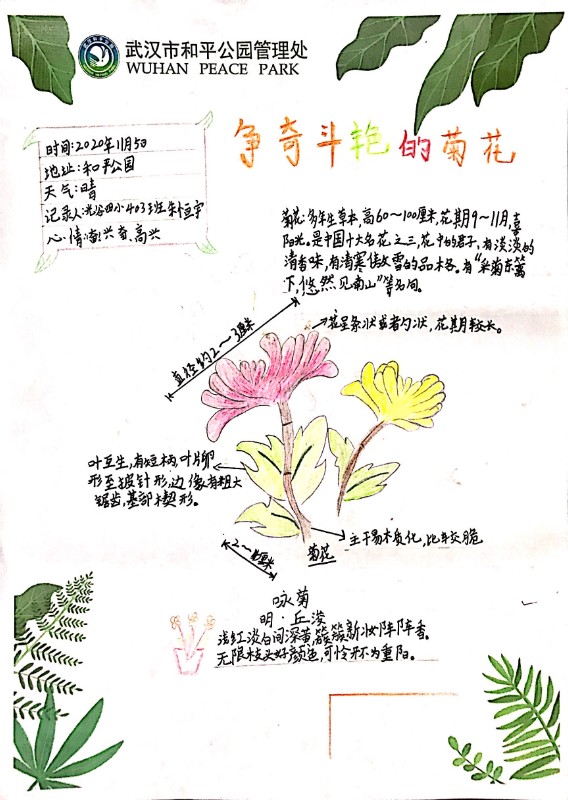 武汉市和平公园管理处
WUHAN PEACE PARK
争奇斗艳的菊花
时间:2020年11月5日
地址:和平公园
天气:晴
记录人:光谷四小403班朱恒宇
心情:高兴奋、高兴
菊花:多年生草本,高60~100厘米,花期9~11月,喜
阳光。是中国十大名花之三,花中的君子。有淡淡的
清香味,有清寒傲雪的品格。有"采菊东篱
下,悠然见南山"等名句。
花呈条状或者勺状,花期较长。
直径约2~3厘米
叶互生,有短柄,叶片卵
形至披针形,边缘有粗大
锯齿,基部楔形。
主干易木质化,比较脆
2~4厘米
菊花
咏菊
明·丘浚
浅红淡白间深黄,簇簇新妆阵阵香。
无限枝头好颜色,可怜开不为重阳。